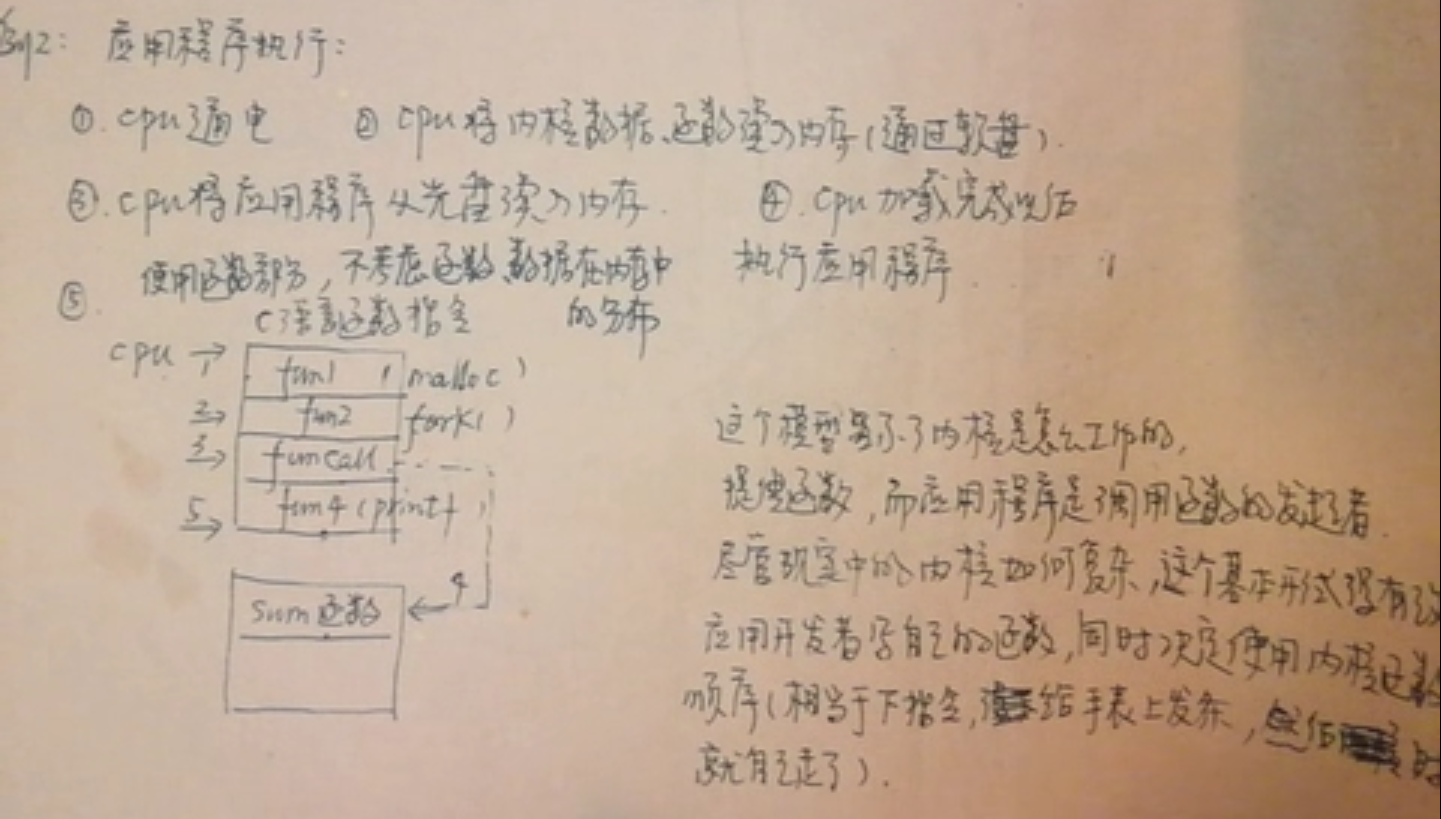 应用程序执行:
①. cpu通电 ② cpu将内核数据、函数读入内存(通过软盘).
③. cpu将应用程序从光盘读入内存. ④. cpu加载完成以后
执行应用程序.
⑤. 使用函数部分,不考虑函数、数据在内存中
的分布
C语言函数指令
cpu 1→ fun1 (malloc)
2→ fun2 fork()
3→ funcall
5→ fun4(printf)
sum函数 ← 4
这个模型显示了内核是怎么工作的,
提供函数,而应用程序是调用函数的发起者.
尽管现实中的内核如何复杂,这个基本形式没有
应用开发者写自己的函数,同时决定使用内核函数
顺序(相当于下指令,给手表上发条,然后
就自己走了).